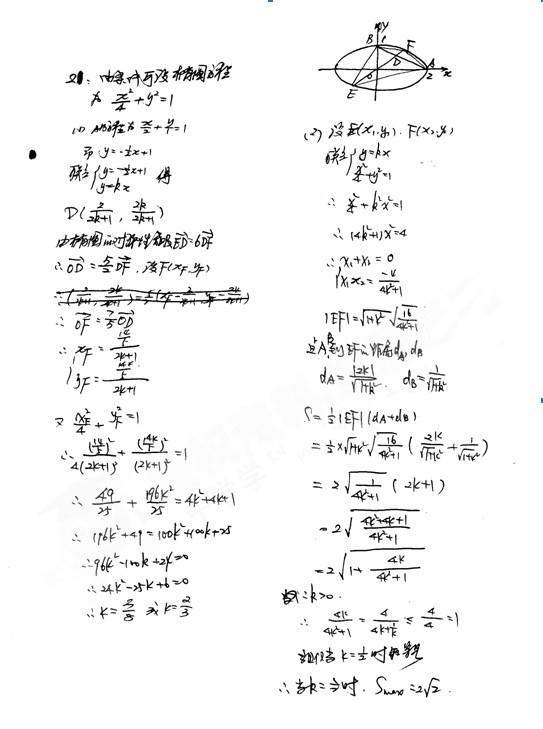 21. 由条件可设椭圆方程
为 x²/4 + y² = 1
(1) AB方程为 x/2 + y = 1
即 y = -½x + 1
联立 { y = -½x + 1
y = kx 得
D( 2/(2k+1) , 2k/(2k+1) )
由椭圆的对称性及 ED = 6DF
∴ OD = 5/2 DF , 设F(x_F, y_F)
∴ OF = 7/5 OD
∴ { x_F = (14/5)/(2k+1)
y_F = (14k/5)/(2k+1)
又 x_F²/4 + y_F² = 1
∴ (14/5)²/4(2k+1)² + (14k/5)²/(2k+1)² = 1
∴ 49/25 + 196k²/25 = 4k²+4k+1
∴ 196k²+49 = 100k²+100k+25
∴ 96k²-100k+24=0
∴ 24k²-25k+6=0
∴ k = 3/8 或 k = 2/3
y
B 1 F
D
O A 2 x
E
(2) 设E(x₁,y₁), F(x₂,y₂)
联立 { y = kx
x²/4 + y² = 1
∴ x²/4 + k²x² = 1
∴ (4k²+1)x² = 4
∴ { x₁+x₂ = 0
x₁x₂ = -4/(4k²+1)
|EF| = √(1+k²) √(16/(4k²+1))
A,B到EF的距离d_A, d_B
d_A = |2k|/√(1+k²) d_B = 1/√(1+k²)
S = ½|EF|(d_A+d_B)
= ½×√(1+k²) √(16/(4k²+1)) ( 2k/√(1+k²) + 1/√(1+k²) )
= 2√(1/(4k²+1)) (2k+1)
= 2√((4k²+4k+1)/(4k²+1))
= 2√(1+ 4k/(4k²+1))
∵ k>0
∴ 4k/(4k²+1) = 4/(4k+1/k) ≤ 4/4 = 1
当且仅当 k=½ 时取等号
∴ 当k=½时, Smax = 2√2.